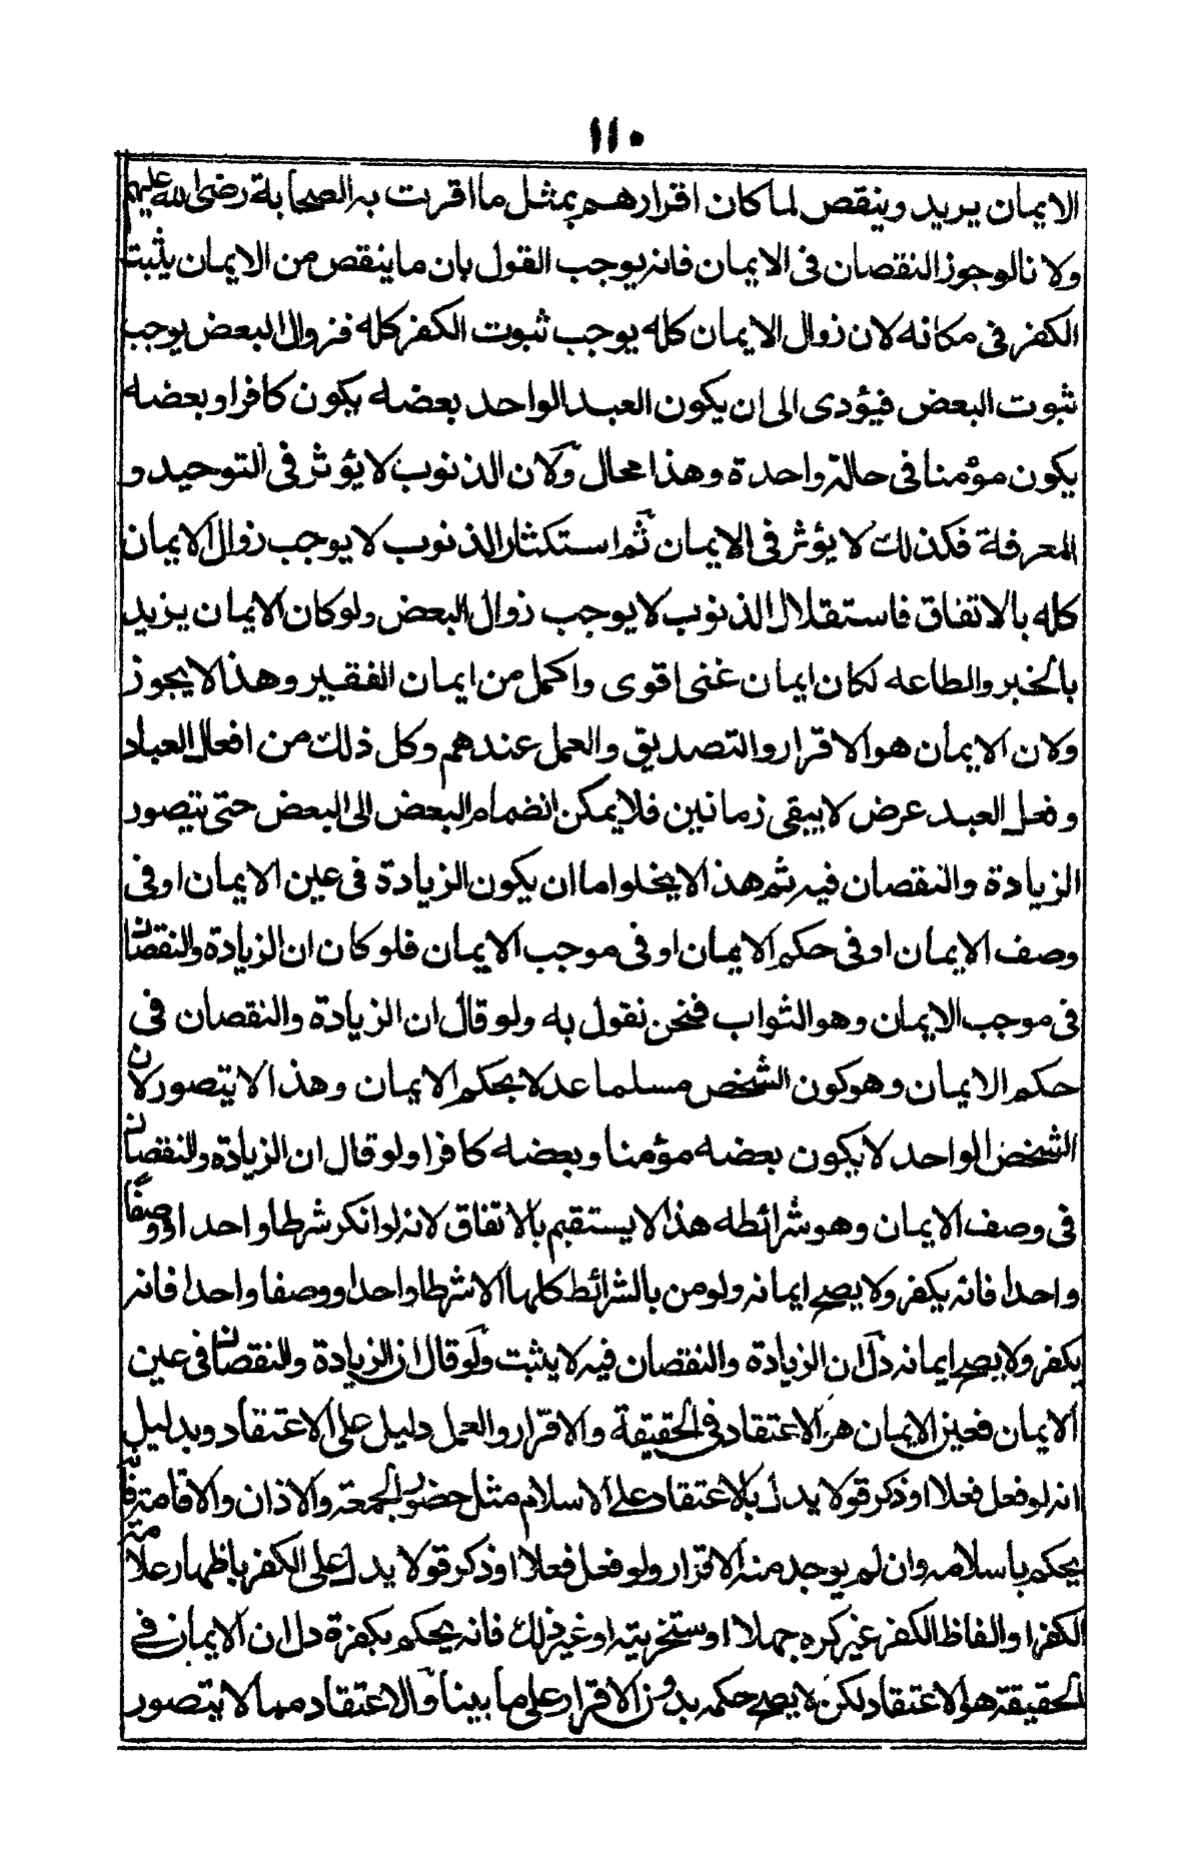 ١١٠
الايمان يريد وينقص لما كان اقرارهم بمثل ما اقرت به الصحابة رضى الله عليهم
ولانا لوجوز النقصان فى الايمان فانه يوجب القول بان ما ينقص من الايمان يثبت
الكفر فى مكانه لان زوال الايمان كله يوجب ثبوت الكفر كله فزوال البعض يوجب
ثبوت البعض فيؤدى الى ان يكون العبد الواحد بعضه يكون كافرا وبعضه
يكون مؤمنا فى حالة واحدة وهذا محال ولان الذنوب لا يؤثر فى التوحيد و
المعرفة فكذلك لا يؤثر فى الايمان ثم استكثار الذنوب لا يوجب زوال الايمان
كله بالاتفاق فاستقلال الذنوب لا يوجب زوال البعض ولو كان الايمان يزيد
بالخير والطاعه لكان ايمان غنى اقوى واكمل من ايمان الفقير وهذا لا يجوز
ولان الايمان هو الاقرار والتصديق والعمل عندهم وكل ذلك من افعال العباد
وفعل العبد عرض لا يبقى زمانين فلا يمكن انضمام البعض الى البعض حتى يتصور
الزيادة والنقصان فيه ثم هذا لا يخلوا ما ان يكون الزيادة فى عين الايمان او فى
وصف الايمان او فى حكم الايمان او فى موجب الايمان فلو كان ان الزيادة والنقصان
فى موجب الايمان وهو الثواب فنحن نقول به ولو قال ان الزيادة والنقصان فى
حكم الايمان وهو كون الشخص مسلما عدلا بحكم الايمان وهذا لا يتصور لان
الشخص الواحد لا يكون بعضه مؤمنا وبعضه كافرا ولو قال ان الزيادة والنقصان
فى وصف الايمان وهو شرائطه هذا لا يستقيم بالاتفاق لانه لو انكر شرطا واحد او وصفًا
واحدا فانه يكفر ولا يصح ايمانه ولو من بالشرائط كلها الا شرطا واحدا ووصفا واحدا فانه
يكفر ولا يصح ايمانه دل ان الزيادة والنقصان فيه لا يثبت ولو قال ان الزيادة والنقصان فى عين
الايمان فعين الايمان هو الاعتقاد فى الحقيقة والاقرار والعمل دليل على الاعتقاد وبدليل
انه لو فعل فعلا او ذكر قولا يدل بالاعتقاد على الاسلام مثل حضور الجمعة والاذان والاقامة فانه
يحكم باسلامه وان لم يوجد منه الاقرار ولو فعل فعلا او ذكر قولا يدل على الكفر باظهار علامته
الكفر او الفاظ الكفر غير كره جهلا او ستخريته او غير ذلك فانه يحكم بكفرة دل ان الايمان فى
الحقيقة هو الاعتقاد لكن لا يصح حكمه بدون الاقرار على ما بينا والاعتقاد مما لا يتصور